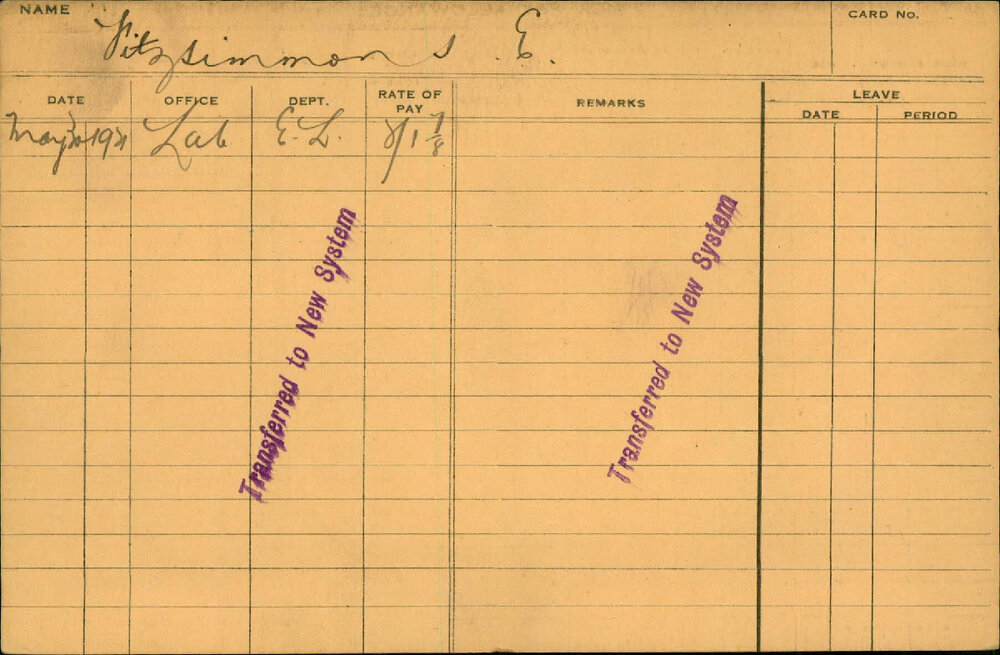 NAME Fitzsimmons E. CARD No.
DATE OFFICE DEPT. RATE OF PAY REMARKS LEAVE
DATE PERIOD
May Lab E.L. 1/1 7/8
Transferred to New System
Transferred to New System